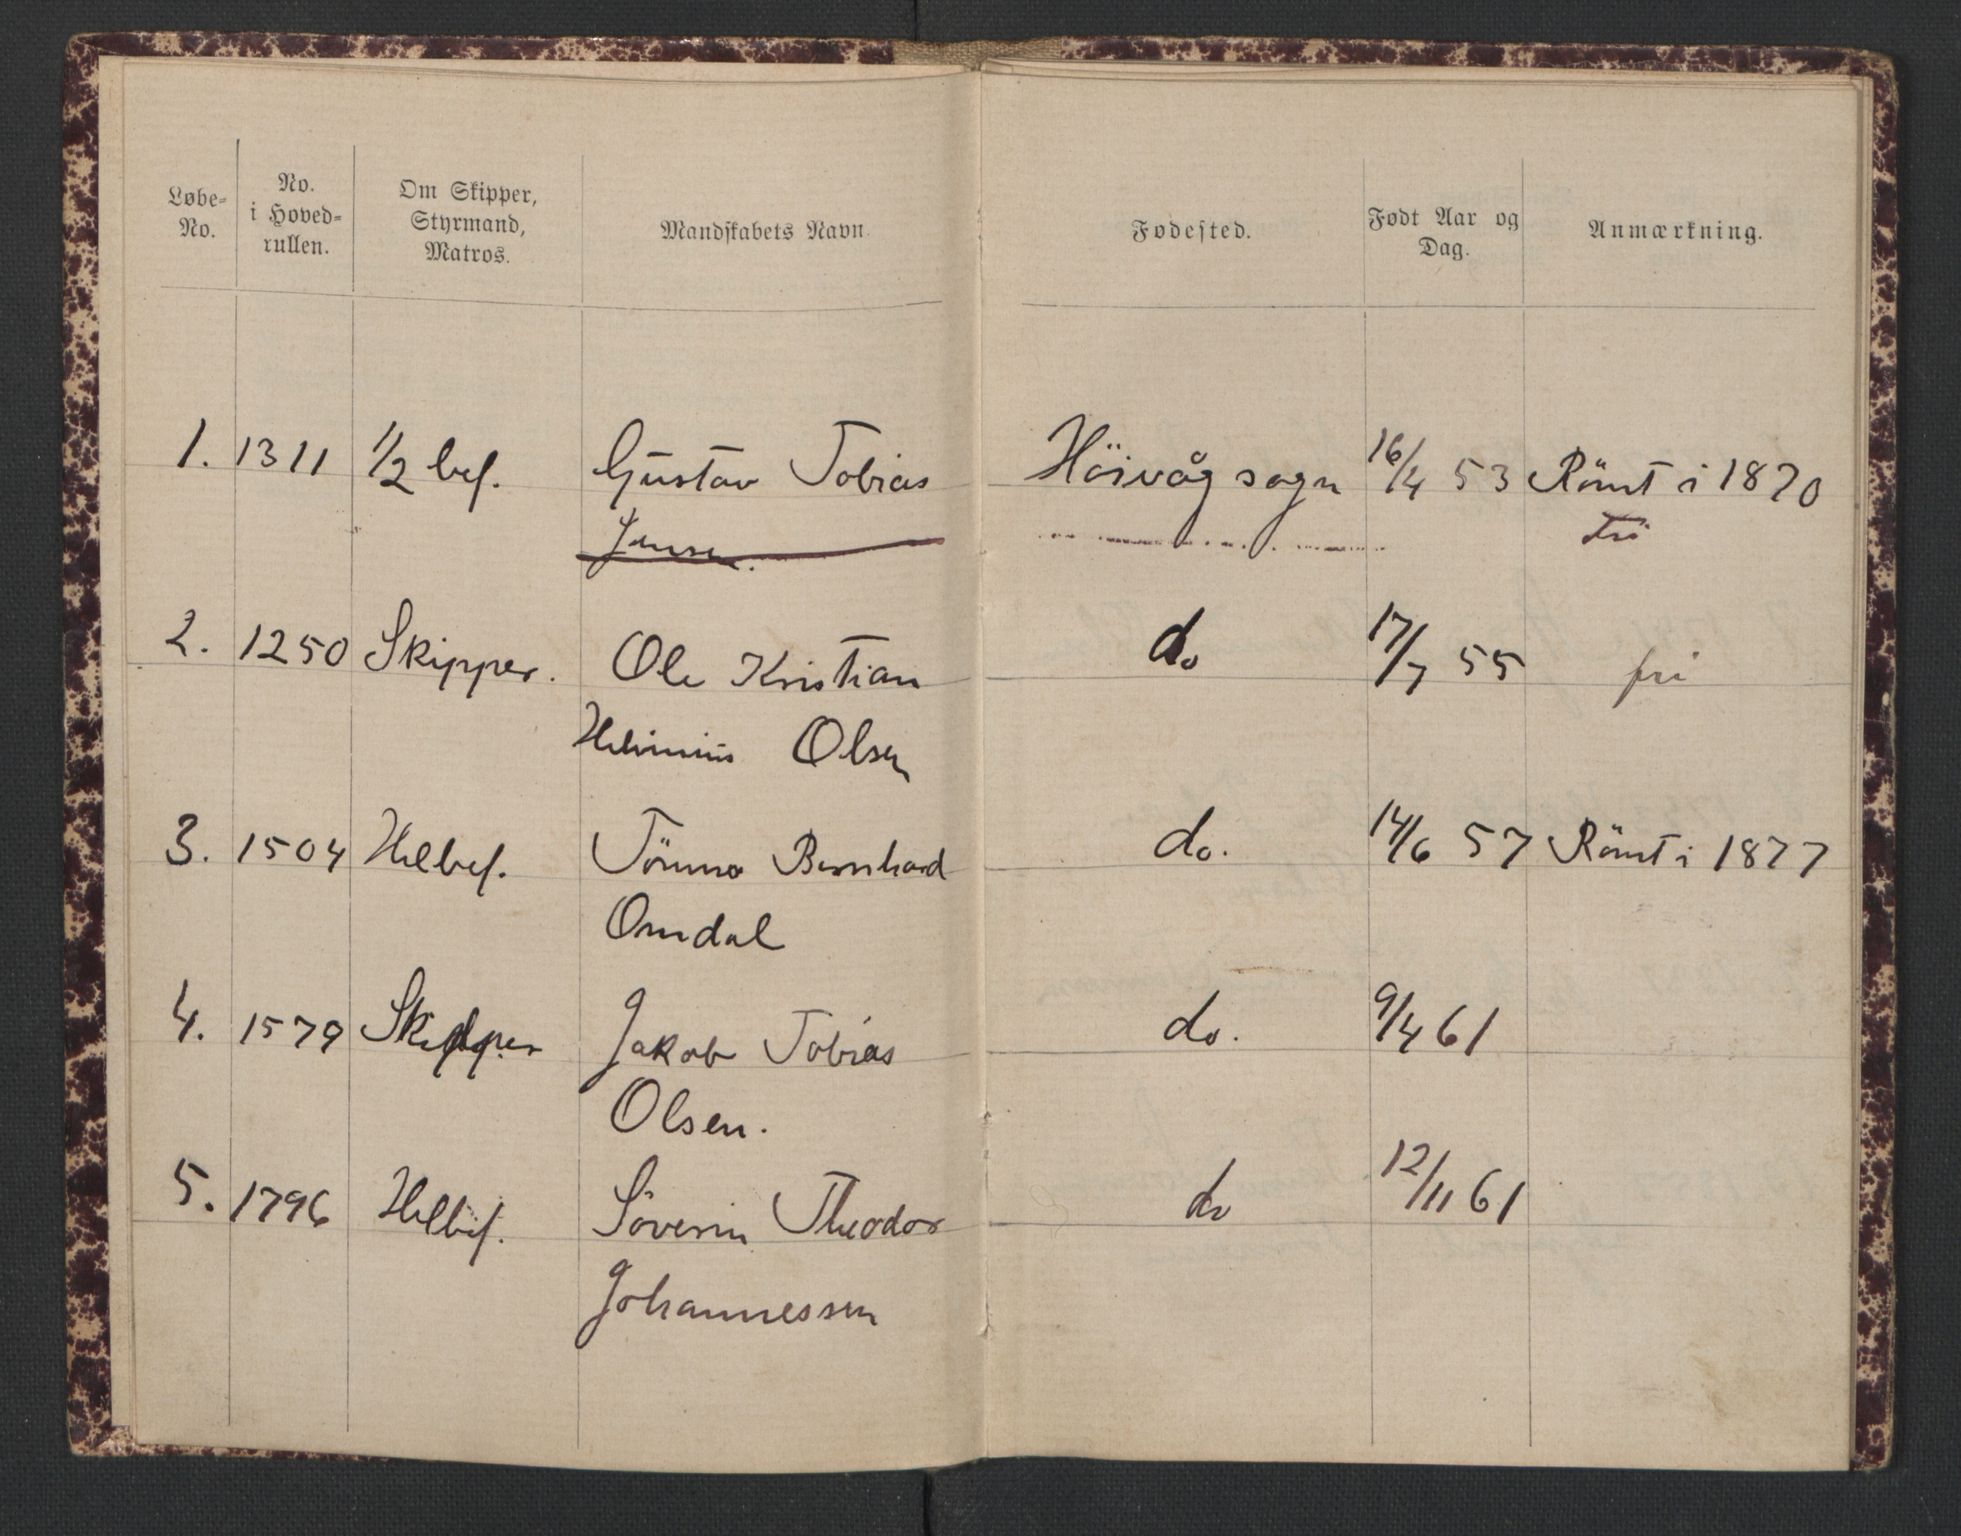 Løbe-No. No. i Hoved-rullen. Om Skipper, Styrmand, Matros. Mandskabets Navn. Fødested. Født Aar og Dag. Anmærkning.
1. 1311 1/2 bef. Gustav Tobias Höivåg sogn 16/4 53 Römt i 1870
Jensen. fri
2. 1250 Skipper. Ole Kristian do 17/7 55 fri
Olsen
3. 1504 Helbef. Tönnes Bernhard do. 14/6 57 Römt i 1877
Omdal
4. 1579 Skipper Jakob Tobias do. 9/4 61
Olsen.
5. 1796 Helbef. Söverin Theodor do 12/11 61
Johannessen